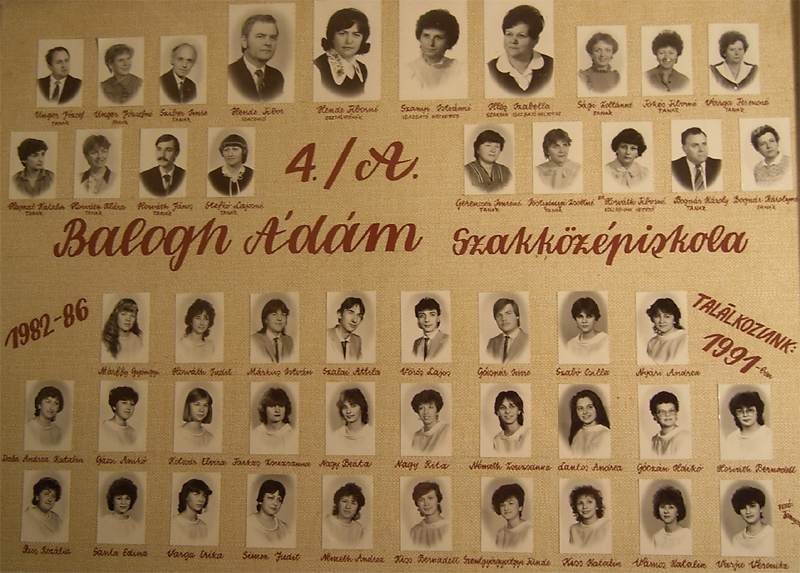 Unger József
TANÁR
Unger Józsefné
TANÁR
Szeiber Imre
TANÁR
Hende Tibor
IGAZGATÓ
Hende Tiborné
OSZTÁLYFŐNÖK
Szanyi Istvánné
IGAZGATÓ HELYETTES
Hég Izabella
SZAKMAI IGAZGATÓ HELYETTES
Sági Zoltánné
TANÁR
Tőkés Tiborné
TANÁR
Varga Ferencné
TANÁR
Katalin
TANÁR
Horváth Klára
TANÁR
Horváth János
TANÁR
Stefkó Lajosné
TANÁR
4./A.
Gerencsér Imréné
TANÁR
Rostyányi Zsoltné
TANÁR
Horváth Tiborné
Bognár Károly
TANÁR
Bognár Károlyné
TANÁR
Balogh Ádám Szakközépiskola
1982-86
TALÁLKOZUNK:
1991-ben
Györgyi
Horváth Judit
Márkus István
Szalai Attila
Vörös Lajos
Gáspár Imre
Szabó Csilla
Nyári Andrea
Andrea Katalin
Gács Anikó
Kolozsár Elvira
Farkas Zsuzsanna
Nagy Beáta
Nagy Rita
Németh Zsuzsanna
Lantos Andrea
Góczán Ildikó
Horváth Bernadett
Rozália
Sánta Edina
Varga Erika
Simon Judit
Németh Andrea
Kiss Bernadett
Szentgyörgyvölgyi Tünde
Kiss Katalin
Vámos Katalin
Varju Veronika